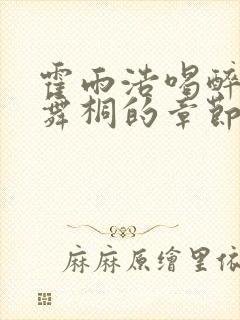 霍雨浩喝醉
舞桐的章節
麻麻原繪里依